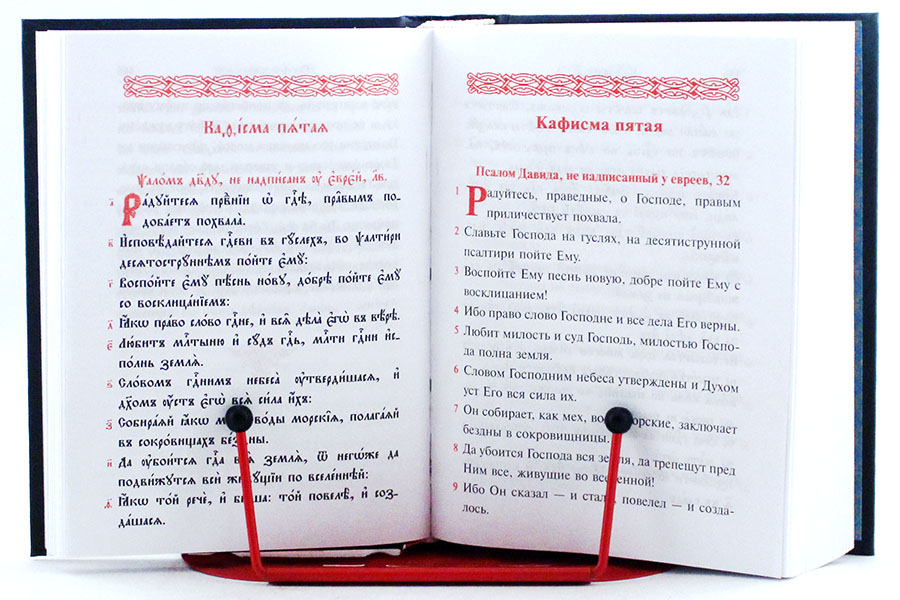 Каѳі́сма пѧ́таѧ
Ѱало́мъ дв҃ду, не надпи́санъ ѹ҆ є҆вре́й, л҃в.
а҃ Ра́дуйтєсѧ првⷣнїи ѡ҆ гдⷭ҇ѣ, пра̑вымъ по-
доба́етъ похвала̀.
в҃ И҆сповѣ́дайтесѧ гдⷭ҇еви въ гꙋ́слехъ, во ѱалти́ри
десѧтострꙋ́ннѣмъ по́йте є҆мꙋ̀.
г҃ Воспо́йте є҆мꙋ̀ пѣ́снь но́вꙋ, до́брѣ по́йте є҆мꙋ̀
со восклица́нїемъ:
д҃ Ꙗ҆́кѡ пра́во сло́во гдⷭ҇не, и҆ всѧ̑ дѣла̀ є҆гѡ̀ въ вѣ́рѣ.
є҃ Лю́битъ млⷭ҇тыню и҆ сꙋ́дъ гдⷭ҇ь, млⷭ҇ти гдⷭ҇ни и҆с-
по́лнь землѧ̀.
ѕ҃ Сло́вомъ гдⷭ҇нимъ небеса̀ ᲂу҆тверди́шасѧ, и҆
дх҃омъ ᲂу҆́стъ є҆гѡ̀ всѧ̀ си́ла и҆́хъ:
з҃ Собира́ѧй ꙗ҆́кѡ во́ды морскі̑ѧ, полага́ѧй
въ сокро́вищахъ бе́здны.
и҃ Да ᲂу҆бои́тсѧ гдⷭ҇а всѧ̀ землѧ̀, ѿ негѡ́же да
подви́жꙋтсѧ всѝ живꙋ́щїи по вселе́ннѣй:
ѳ҃ Ꙗ҆́кѡ то́й речѐ, и҆ бы́ша: то́й повелѣ̀, и҆ соз-
да́шасѧ.
Кафисма пятая
Псалом Давида, не надписанный у евреев, 32
1 Радуйтесь, праведные, о Господе, правым
приличествует похвала.
2 Славьте Господа на гуслях, на десятиструнной
псалтири пойте Ему.
3 Воспойте Ему песнь новую, добре пойте Ему с
восклицанием!
4 Ибо право слово Господне и все дела Его верны.
5 Любит милость и суд Господь, милостью Госпо-
да полна земля.
6 Словом Господним небеса утверждены и Духом
уст Его вся сила их.
7 Он собирает, как мех, морские, заключает
бездны в сокровищницы.
8 Да убоится Господа вся земля, да трепещут пред
Ним все, живущие во вселенной!
9 Ибо Он сказал — и стали, повелел — и созда-
лось.